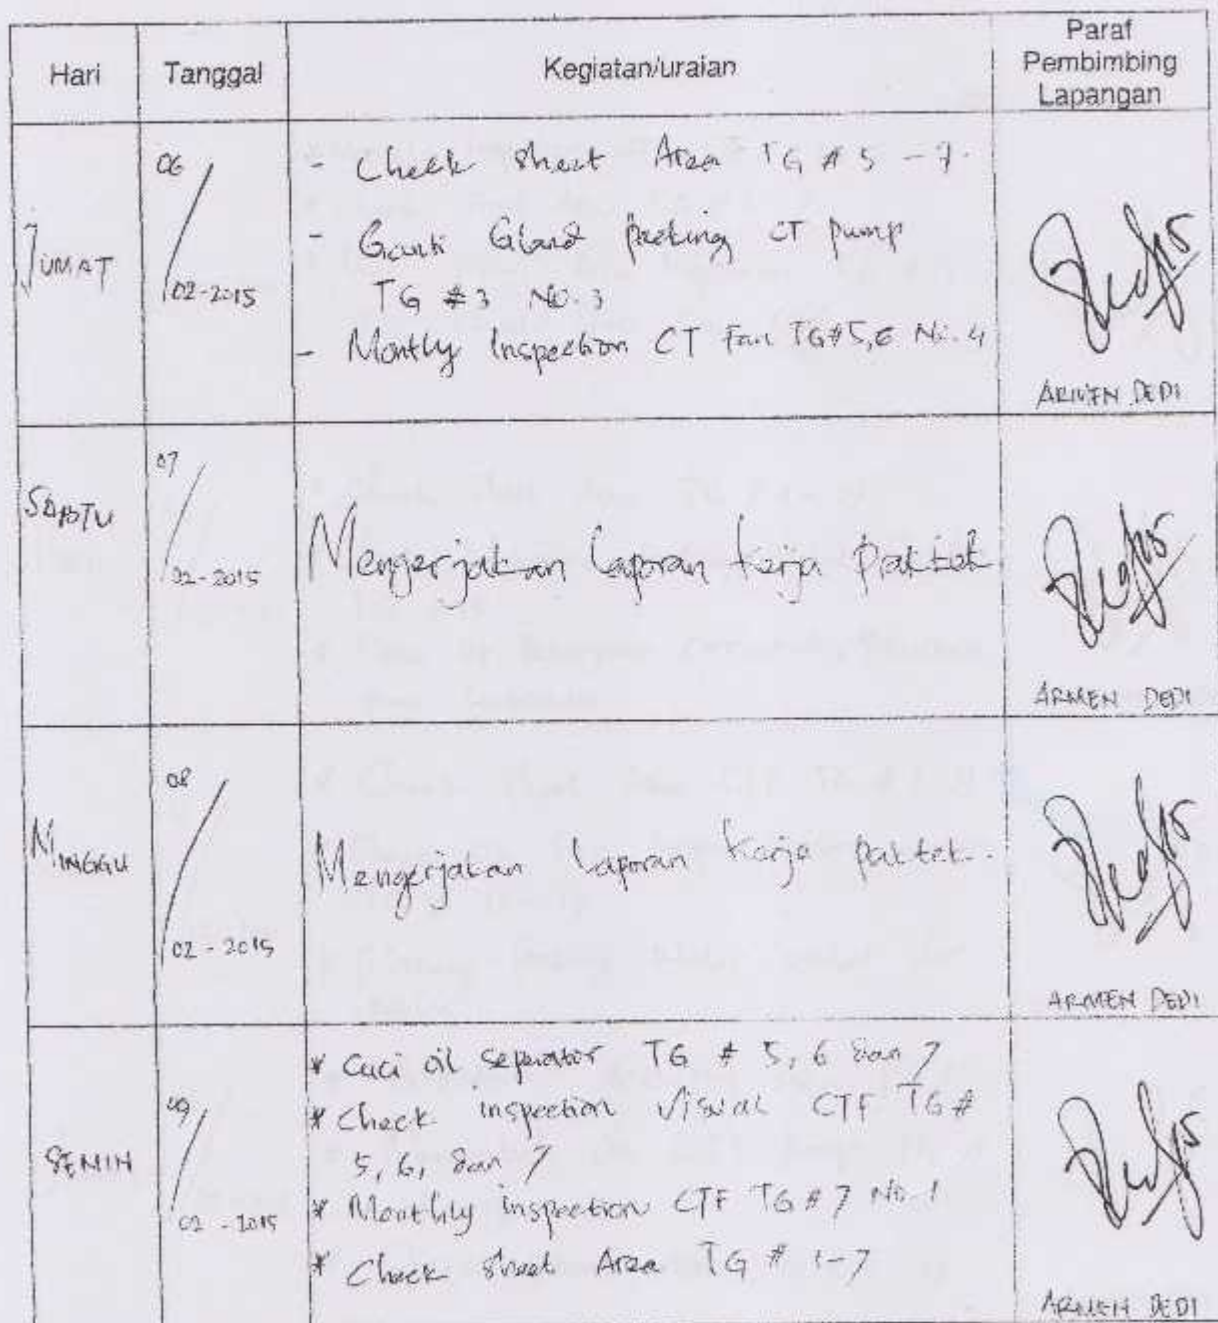 Hari Tanggal Kegiatan/uraian Paraf Pembimbing Lapangan
JUMAT 06/02-2015
- Check sheet Area TG # 5 - 7.
- Ganti Gland packing CT pump
TG # 3 No. 3
- Montly Inspection CT Fan TG#5,6 No. 4
ARMEN DEDI
SABTU 07/02-2015
Mengerjakan laporan kerja praktek
ARMEN DEDI
MINGGU 08/02-2015
Mengerjakan laporan kerja paktek.
ARMEN DEDI
SENIN 09/02-2015
* Cuci oil separator TG # 5, 6 dan 7
* Check inspection visual CTF TG #
5, 6, dan 7
* Monthly inspection CTF TG # 7 No. 1
* Check sheet Area TG # 1-7
ARMEN DEDI